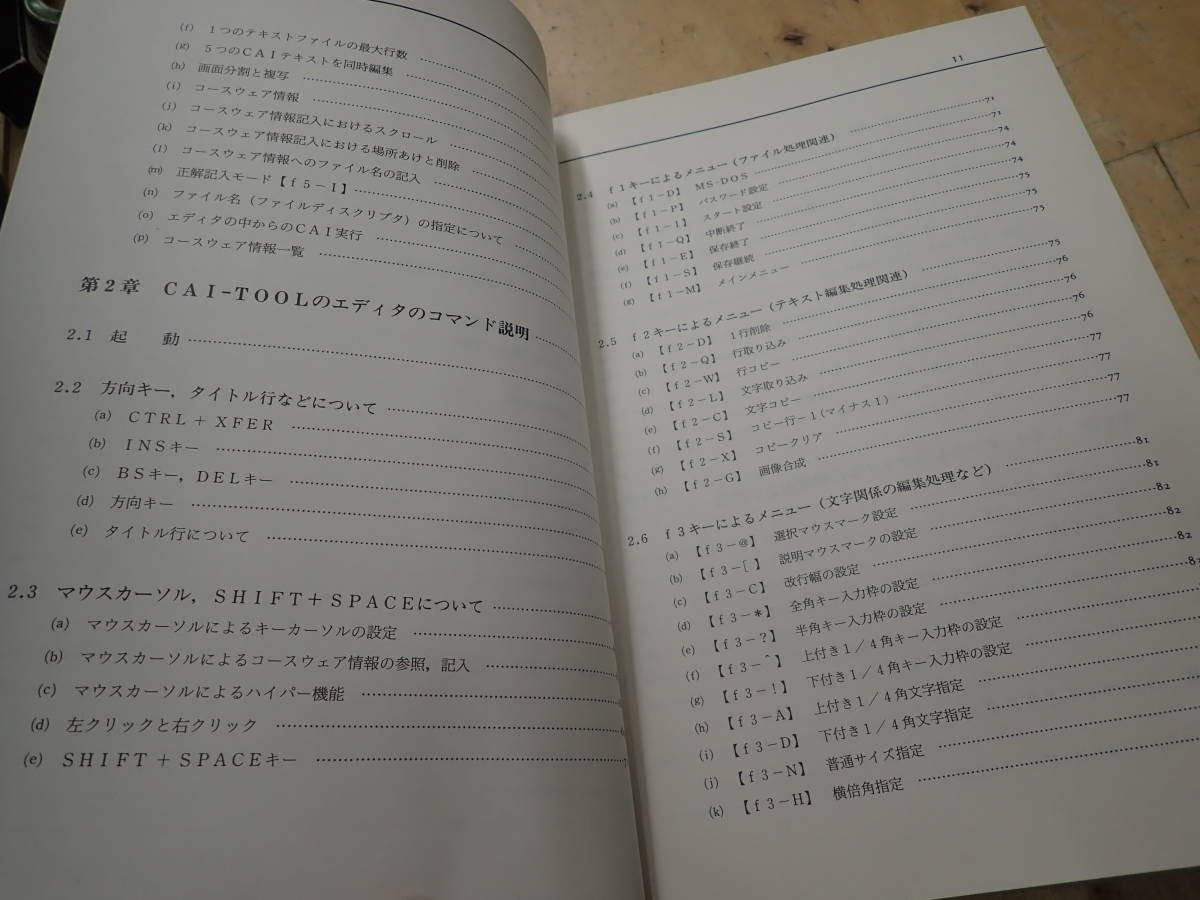 (f) 1つのテキストファイルの最大行数
(g) 5つのCAIテキストを同時編集
(h) 画面分割と複写
(i) コースウェア情報
(j) コースウェア情報記入におけるスクロール
(k) コースウェア情報記入における場所あけと削除
(l) コースウェア情報へのファイル名の記入
(m) 正解記入モード【f5-I】
(n) ファイル名(ファイルディスクリプタ)の指定について
(o) エディタの中からのCAI実行
(p) コースウェア情報一覧
第2章 CAI-TOOLのエディタのコマンド説明
2.1 起 動
2.2 方向キー,タイトル行などについて
(a) CTRL+XFER
(b) INSキー
(c) BSキー,DELキー
(d) 方向キー
(e) タイトル行について
2.3 マウスカーソル,SHIFT+SPACEについて
(a) マウスカーソルによるキーカーソルの設定
(b) マウスカーソルによるコースウェア情報の参照,記入
(c) マウスカーソルによるハイパー機能
(d) 左クリックと右クリック
(e) SHIFT+SPACEキー
11
2.4 f1キーによるメニュー(ファイル処理関連) 71
(a) 【f1-D】 MS-DOS 71
(b) 【f1-P】 パスワード設定 74
(c) 【f1-I】 スタート設定 74
(d) 【f1-Q】 中断終了 74
(e) 【f1-E】 保存終了 75
(f) 【f1-S】 保存継続 75
(g) 【f1-M】 メインメニュー 75
2.5 f2キーによるメニュー(テキスト編集処理関連) 75
(a) 【f2-D】 1行削除 76
(b) 【f2-Q】 行取り込み 76
(c) 【f2-W】 行コピー 76
(d) 【f2-L】 文字取り込み 76
(e) 【f2-C】 文字コピー 77
(f) 【f2-S】 コピー行-1(マイナス1) 77
(g) 【f2-X】 コピークリア 77
(h) 【f2-G】 画像合成 77
2.6 f3キーによるメニュー(文字関係の編集処理など) 81
(a) 【f3-@】 選択マウスマーク設定 81
(b) 【f3-[】 説明マウスマークの設定 82
(c) 【f3-C】 改行幅の設定 82
(d) 【f3-*】 全角キー入力枠の設定 82
(e) 【f3-?】 半角キー入力枠の設定
(f) 【f3-^】 上付き1/4角キー入力枠の設定
(g) 【f3-!】 下付き1/4角キー入力枠の設定
(h) 【f3-A】 上付き1/4角文字指定
(i) 【f3-D】 下付き1/4角文字指定
(j) 【f3-N】 普通サイズ指定
(k) 【f3-H】 横倍角指定